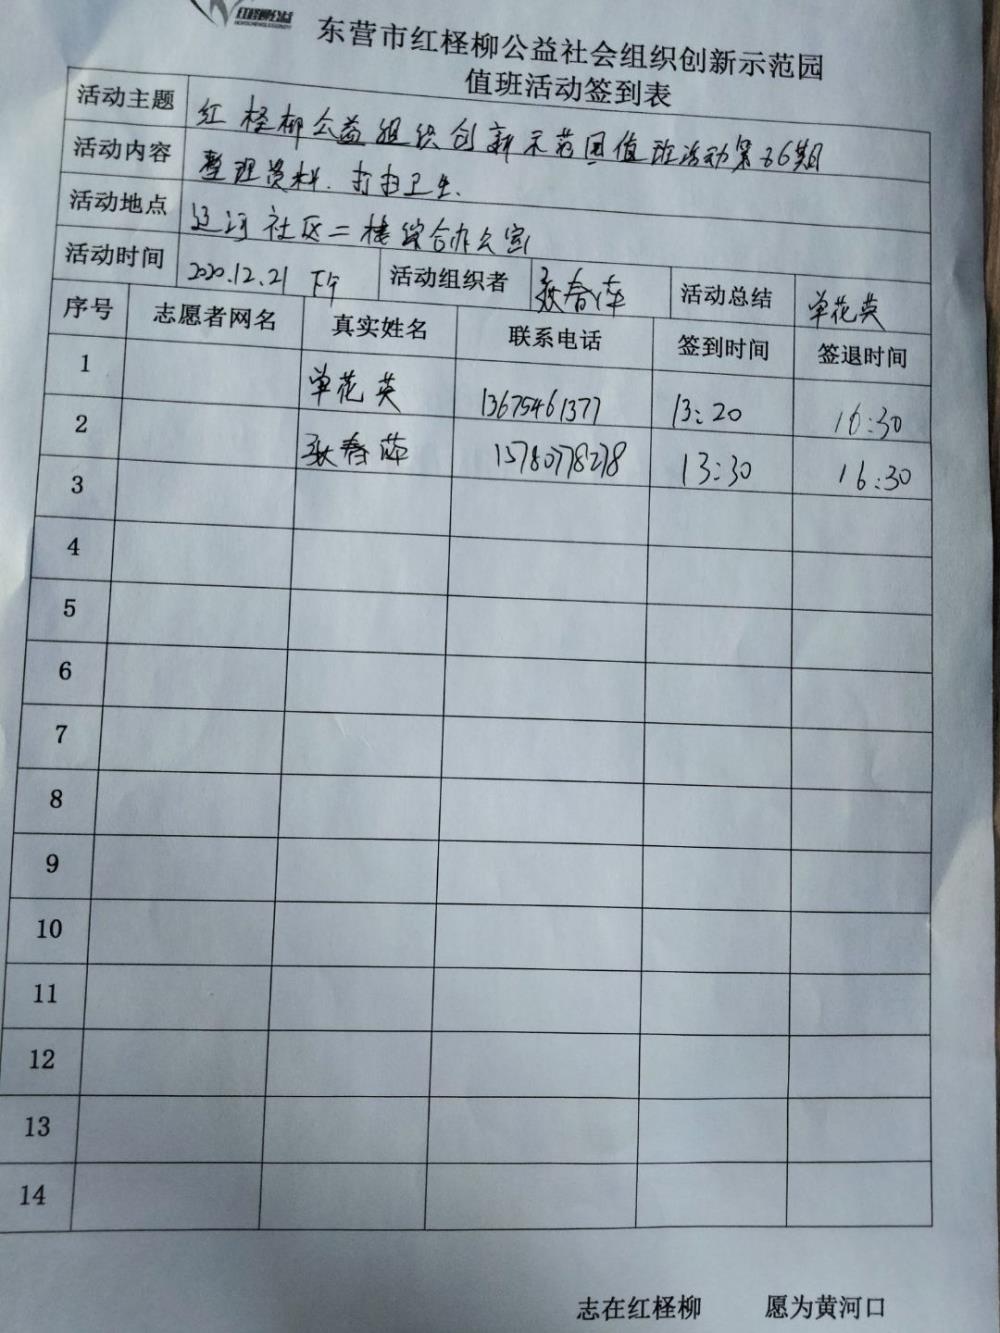 红柽柳公益
东营市红柽柳公益社会组织创新示范园
值班活动签到表
活动主题 红柽柳公益组织创新示范园值班活动第86期
活动内容 整理资料、打扫卫生.
活动地点 辽河社区二楼综合办公室
活动时间 2020.12.21 下午 活动组织者 耿春萍 活动总结 单花英
序号 志愿者网名 真实姓名 联系电话 签到时间 签退时间
1 单花英 13675461377 13:20 16:30
2 耿春萍 13:30 16:30
3
4
5
6
7
8
9
10
11
12
13
14
志在红柽柳 愿为黄河口